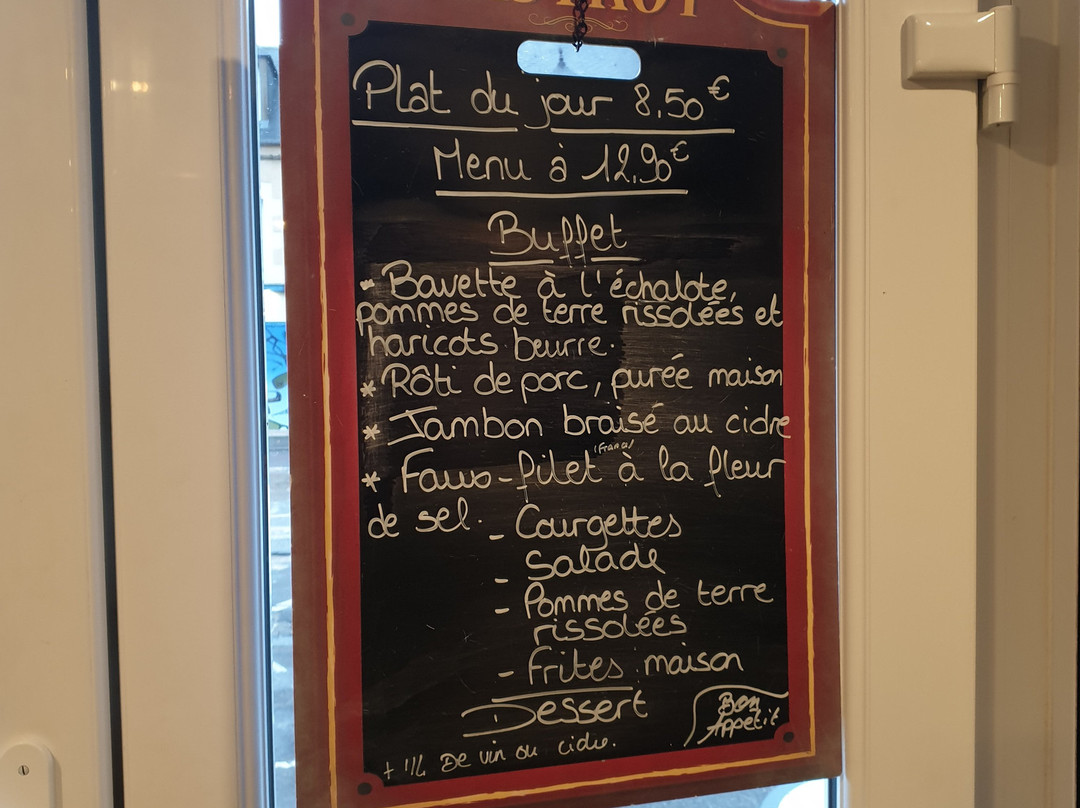 Plat du jour 8,50€
Menu à 12,90€
Buffet
- Bavette à l'échalote,
pommes de terre rissolées et
haricots beurre.
* Rôti de porc, purée maison
* Jambon braisé au cidre
* Faux-filet à la fleur
de sel.
- Courgettes
- Salade
- Pommes de terre
rissolées
- Frites maison
Dessert
Bon
Appétit
De vin ou cidre.